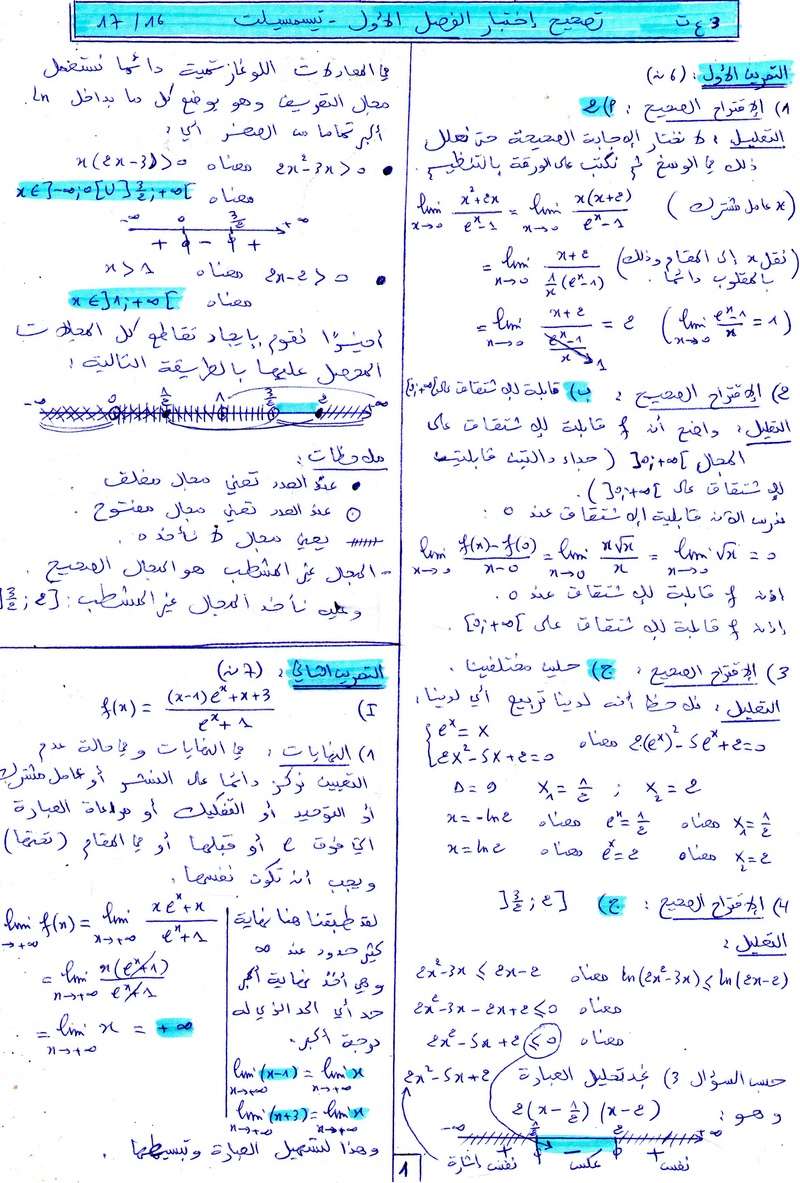 3 ع ت تصحيح إختبار الفصل الأول - تيسمسيلت 16 / 17
التمرين الأول : (6 ن)
1) الإقتراح الصحيح : أ) 2
التعليل : لا نختار الإجابة الصحيحة حتى نعلل
ذلك في الوسخ ثم نكتب على الورقة بالتنظيم.
lim x→0 (x²+2x)/(eˣ-1) = lim x→0 x(x+2)/(eˣ-1) (x عامل مشترك)
= lim x→0 (x+2)/(1/x (eˣ-1)) (نقل x إلى المقام وذلك بالمقلوب دائما.)
= lim x→0 (x+2)/((eˣ-1)/x) = 2 (lim x→0 (eˣ-1)/x = 1)
1
2) الإقتراح الصحيح : ب) قابلة للإشتقاق على [0;+∞[
التعليل : واضح أن f قابلة للإشتقاق على
المجال ]0;+∞[ (جداء دالتين قابلتين
للإشتقاق على ]0;+∞[).
ندرس الآن قابلية الإشتقاق عند 0 :
lim x→0 (f(x)-f(0))/(x-0) = lim x→0 x√x/x = lim x→0 √x = 0
إذن f قابلة للإشتقاق عند 0.
إذن f قابلة للإشتقاق على [0;+∞[.
3) الإقتراح الصحيح : ج) حلين مختلفين.
التعليل : نلاحظ أنه لدينا تربيع أي لدينا :
2(eˣ)²-5eˣ+2=0 معناه { eˣ = X
2X²-5X+2=0
Δ = 9 X₁ = 1/2 ; X₂ = 2
X₁ = 1/2 معناه eˣ = 1/2 معناه x = -ln2
X₂ = 2 معناه eˣ = 2 معناه x = ln2
4) الإقتراح الصحيح : ج) ]3/2 ; 2]
التعليل :
ln(2x²-3x) ≤ ln(2x-2) معناه 2x²-3x ≤ 2x-2
معناه 2x²-3x-2x+2 ≤ 0
معناه 2x²-5x+2 ≤ 0
حسب السؤال 3) نجد تحليل العبارة 2x²-5x+2
وهو : 2(x-1/2)(x-2)
-∞ 1/2 2 +∞
+ - +
نفس إشارة عكس نفس
في المعادلات اللوغاريتمية دائما نستعمل
مجال التعريف وهو بوضع كل ما بداخل ln
أكبر تماما من الصفر أي :
• 2x²-3x > 0 معناه x(2x-3) > 0
معناه x∈]-∞;0[∪]3/2;+∞[
-∞ 0 3/2 +∞
+ - +
• 2x-2 > 0 معناه x > 1
معناه x∈]1;+∞[
أخيرًا نقوم بإيجاد تقاطع كل المجالات
المحصل عليها بالطريقة التالية :
-∞ 0 1/2 1 3/2 2 +∞
ملاحظات :
• عند العدد تعني مجال مغلق.
○ عند العدد تعني مجال مفتوح.
يعني مجال لا نأخذه
- المجال غير المشطب هو المجال الصحيح.
وعليه نأخذ المجال غير المشطب : ]3/2 ; 2]
التمرين الثاني : (7 ن)
I) f(x) = ((x-1)eˣ+x+3)/(eˣ+1)
1) النهايات : في النهايات وفي حالة عدم
التعيين نركز دائما على النشر أو عامل مشترك
أو التوحيد أو التفكيك أو مراعاة العبارة
التي فوق e أو قبلها أو في المقام (تحتها)
ويجب أن تكون نفسها.
lim x→+∞ f(x) = lim x→+∞ (xeˣ+x)/(eˣ+1)
= lim x→+∞ x(eˣ+1)/(eˣ+1)
= lim x→+∞ x = +∞
لقد طبقنا هنا نهاية
كثير حدود عند ∞
وهي أخذ نهاية أكبر
حد أي الحد الذي له
درجة أكبر.
lim x→+∞ (x-1) = lim x→+∞ x
lim x→+∞ (x+3) = lim x→+∞ x
وهذا لتسهيل العبارة وتبسيطها.
1